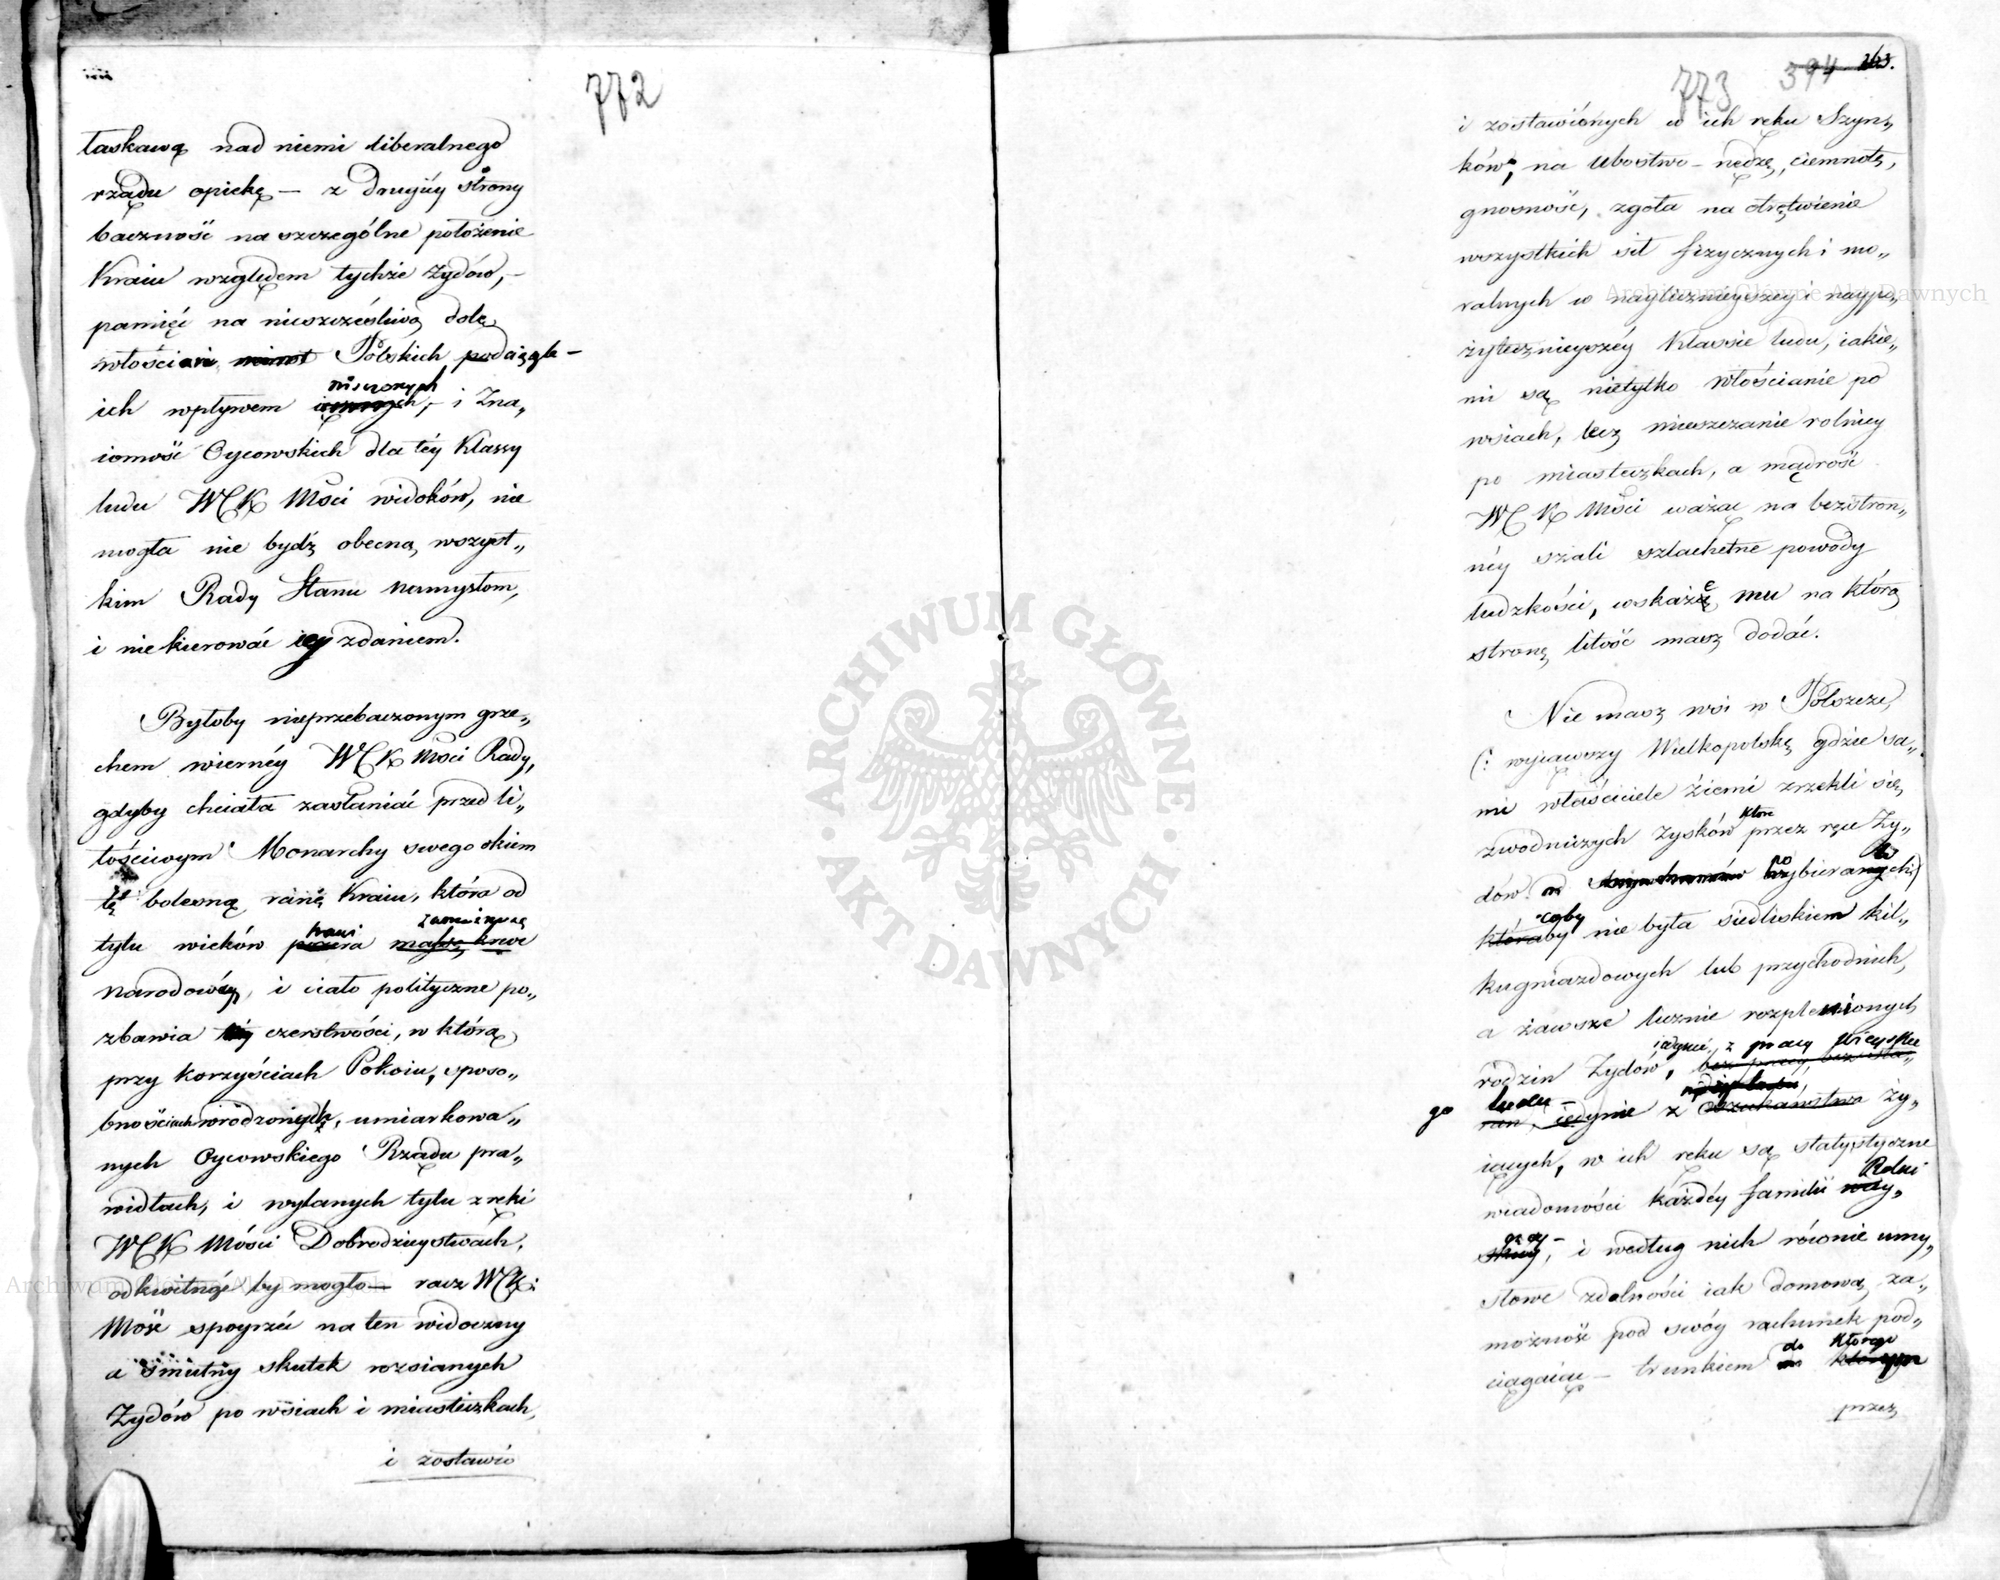 772
łaskawą nad niemi liberalnego
rządu opiekę — z drugiéy strony
baczność na szczególne położenie
Kraiu względem tychże Żydów, —
pamięć na nieszczęśliwą dolę
włościan miast Polskich pod ciągłe-
niszczonych
ich wpływem , — i Zna„
iomość Oycowskich dla téy Klassy
ludu WCK Mości widoków, nie
mogła nie bydź obecną wszyst„
kim Rady Stanu namysłom,
i nie kierować iey zdaniem.
Byłoby nieprzebaczonym grze„
chem wiernéy WCK Mości Rady,
gdyby chciała zasłaniać przed li„
tościwym Monarchy swego okiem
tę bolesną ranę Kraiu, która od
trawi
tylu wieków massę krwi
narodowéy, i ciało polityczne po„
zbawia téy czerstwości, w którą
przy korzyściach Pokoiu, sposo„
bnościach wrodzonych, umiarkowa„
nych Oycowskiego Rządu pra„
widłach, i wylanych tylu z ręki
WCK Mości Dobrodzieystwach,
odkwitnąć by mogło — racz WK:
Mość spoyrzéć na ten widoczny
a smutny skutek rozsianych
Żydów po wsiach i miasteczkach,
i zostawio
773 394 263.
i zostawionych w ich ręku Szyn„
ków; na ubóstwo — nędzę, ciemnotę,
gnosność, zgoła na otrętwienie
wszystkich sił fizycznych i mo„
ralnych w naylicznieyszéy i naypo„
żytecznieyszéy Klassie ludu, iakie„
mi są nietylko włościanie po
wsiach, lecz mieszczanie rolnicy
po miasteczkach, a mądrość
WCK Mości ważąc na bezstron„
néy szali szlachetne powody
ludzkości, wskaże mu na którą
stronę litość masz dodać.
Nie masz wsi w Polszcze,
(: wyiąwszy Wielkopolskę gdzie sa„
mi właściciele ziemi zrzekli się
które
zwodniczych zysków przez ręce Ży„
dów wybieranych:)
coby
któraby nie była siedliskiem kil„
kugniazdowych lub przychodnich,
a zawsze licznie rozplenionych
iedynie z pracy wieyskie
rodzin Żydów, bez pracy,
go ludu —
iedynie z oszukaństwa ży„
iących, w ich ręku są statystyczne
Rolni
wiadomości każdéy familii wiey„
czey —
skiéy, i według nich równie umy„
słowe zdolności iak domową za„
możność pod swóy rachunek pod„
do którego
ciągaiąc — trunkiem w którym
przez
ARCHIWUM GŁÓWNE AKT DAWNYCH
Archiwum Główne Akt Dawnych
Archiwum Główne Akt Dawnych